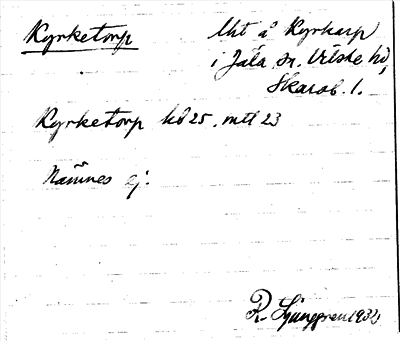 Kyrketorp
Utt å Kyrkarp
i Jäla sn. Vilske hd,
Skarab. l.
Kyrketorp kb 25. mtl 23
Nämnes ej.
R. Ljunggren 1932